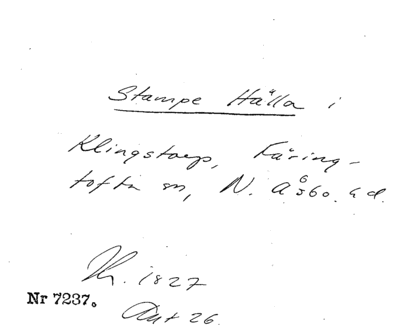 Stampe Hälla i
Klingstorp, Färing-
tofta sn, N. Åsbo hd.
1827
Nr 7237.
26.